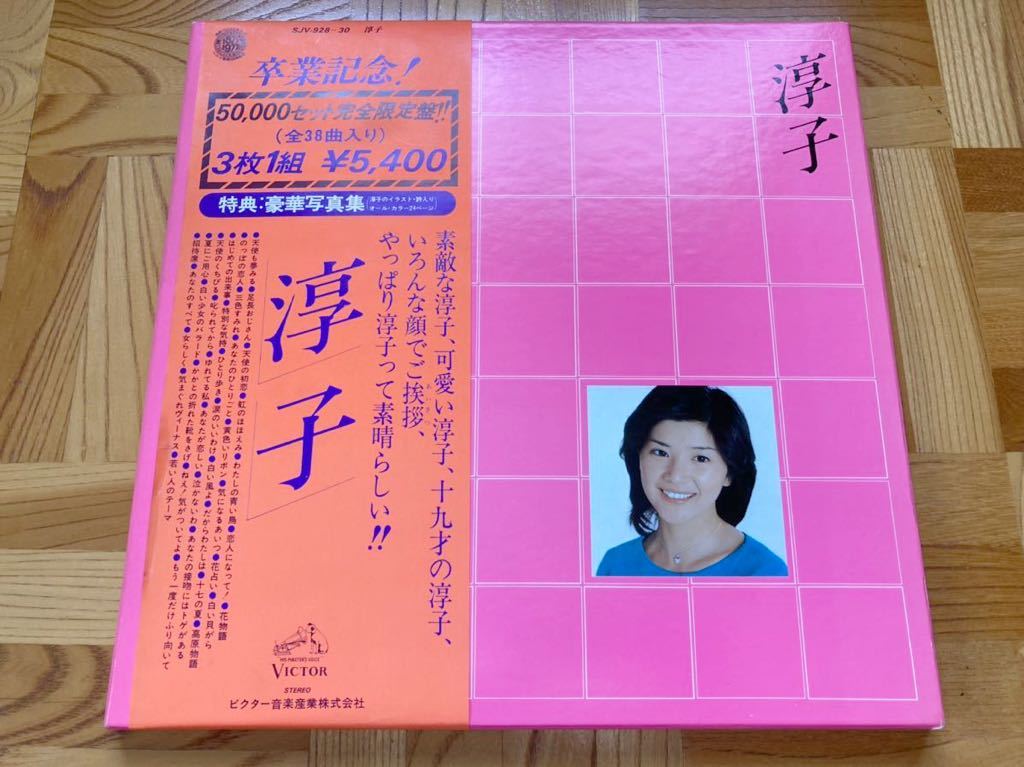 SJV-928-30 淳子
卒業記念!
50,000セット完全限定盤!!
(全38曲入り)
3枚1組 ¥5,400
特典:豪華写真集(淳子のイラスト・詩入り
オール・カラー24ページ)
淳子
素敵な淳子、可愛い淳子、十九才の淳子、
いろんな顔でご挨拶、
あいさつ
やっぱり淳子って素晴らしい!!
淳子
●天使も夢みる●足長おじさん●天使の初恋●虹のほほえみ●わたしの青い鳥●恋人になって!●花物語
●のっぽの恋人●三色すみれ●あなたのひとりごと●黄色いリボン●気になるあいつ●花占い●白い貝がら
●はじめての出来事●特別な気持●ひとり歩き●涙のいいわけ●白い風よ●だからわたしは●十七の夏●高原物語
●天使のくちびる●叱られてから●ゆれてる私●あなたが恋しい●泣かないわ●あなたの接吻にはトゲがある
●夏にご用心●白い少女のバラード●かかとの折れた靴をさげ●ねえ!気がついてよ●もう一度だけふり向いて
●招待席●あなたのすべて●女らしく●気まぐれヴィーナス●若い人のテーマ
HIS MASTER'S VOICE
VICTOR
STEREO
ビクター音楽産業株式会社